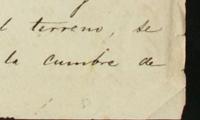 l terreno, se
la cumbre de